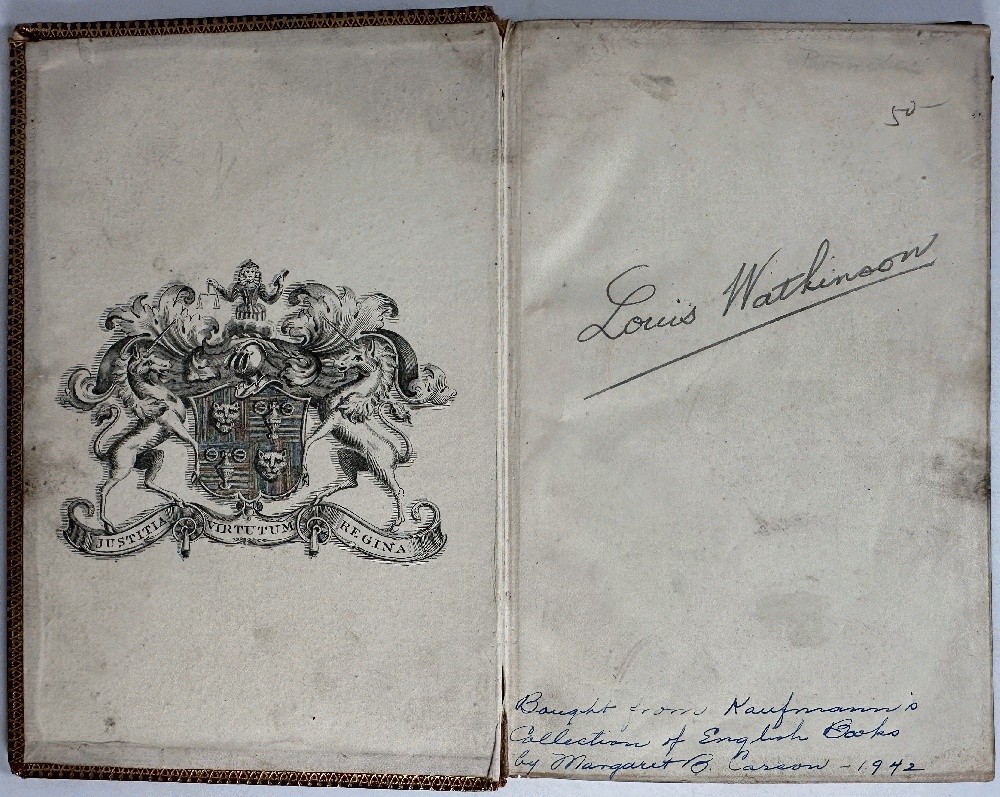 JUSTITIA VIRTUTUM REGINA
50-
Louis Watkinson
Bought from Kaufmann's
Collection of English Books
by Margaret B. Carson - 1942